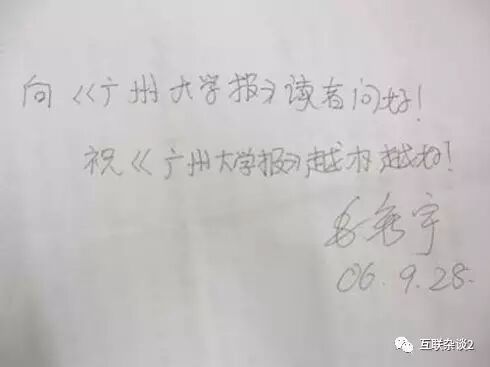 向《广州大学报》读者问好！
祝《广州大学报》越办越好！
毛新宇
06.9.28.
互联杂谈2